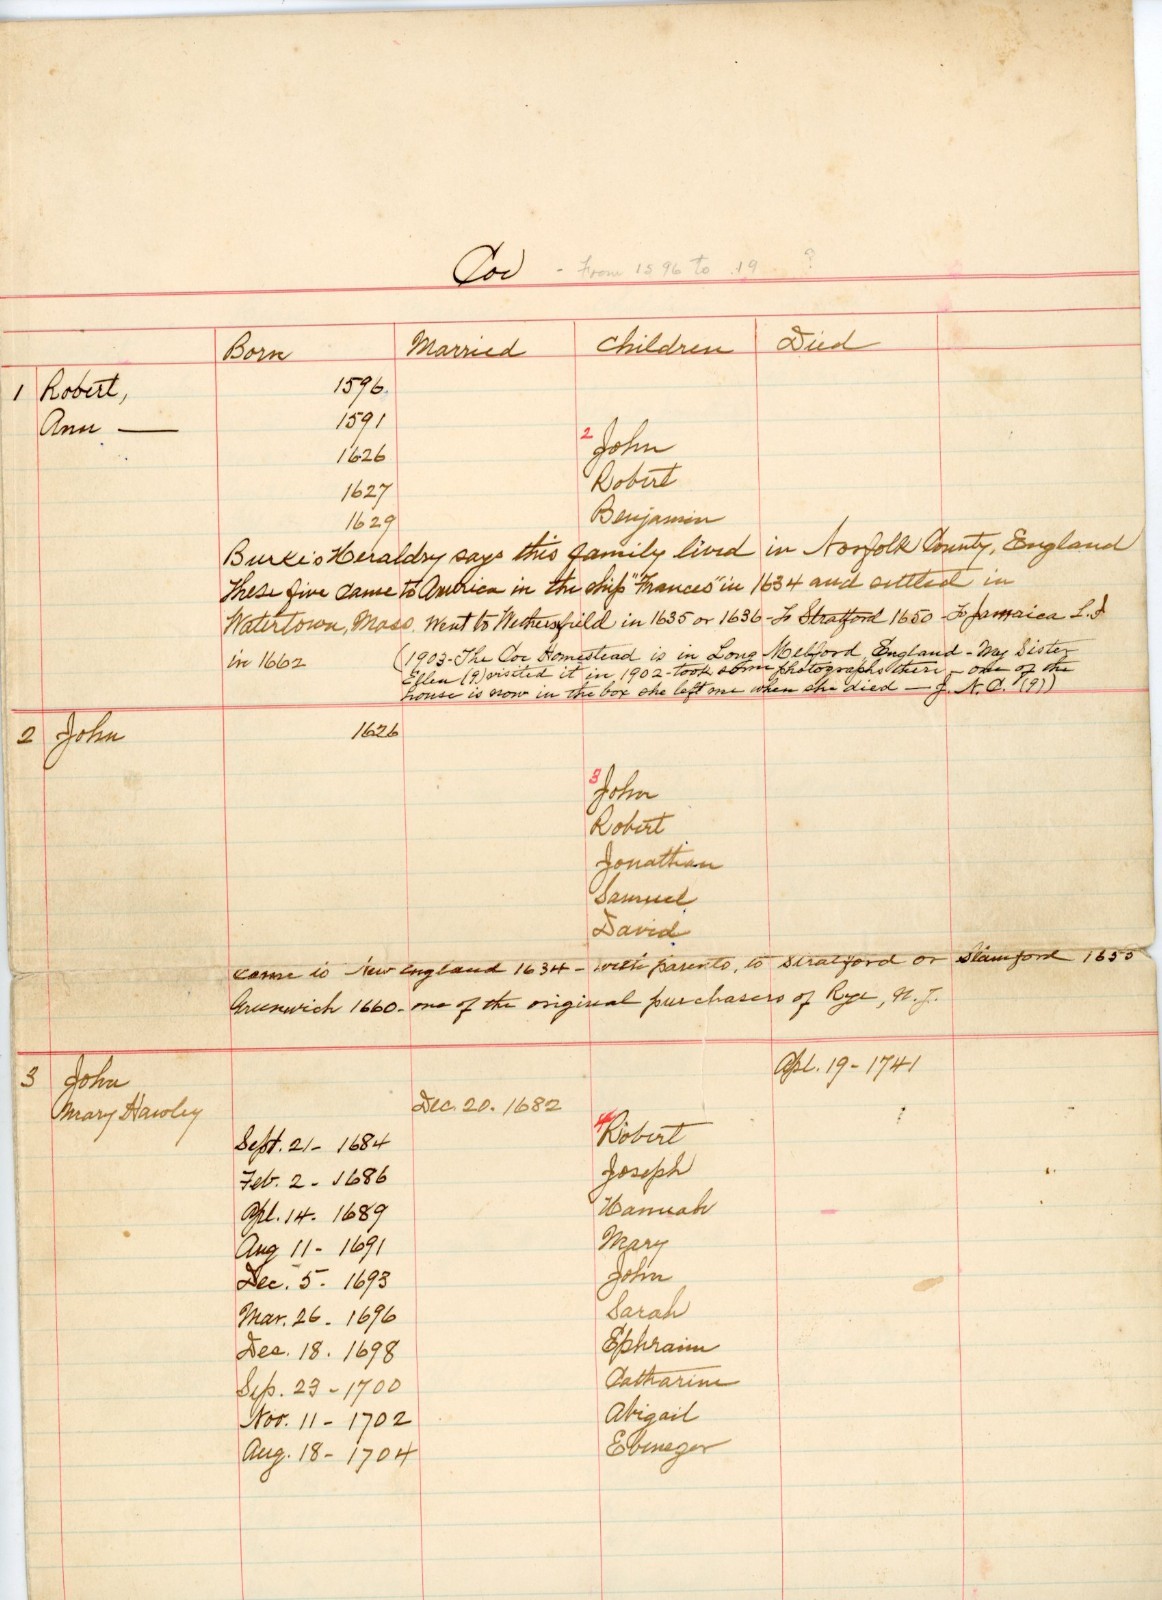 Coe - From 1596 to 19 ?
Born Married Children Died
1 Robert, 1596
Ann — 1591
1626 2 John
1627 Robert
1629 Benjamin
Burke's Heraldry says this family lived in Norfolk County, England
These five came to America in the ship "Frances" in 1634 and settled in
Watertown, Mass. Went to Wethersfield in 1635 or 1636 - To Stratford 1650 - To Jamaica L.I
in 1662 (1903 - The Coe Homestead is in Long Melford, England - My Sister
Ellen (9) visited it in 1902 - took some photographs there - one of the
house is now in the box she left me when she died — J. N. C. (9))
2 John 1626
3 John
Robert
Jonathan
Samuel
David
came to New England 1634 - with parents, to Stratford or Stamford 1655
Greenwich 1660 - one of the original purchasers of Rye, N.J.
3 John Apl. 19 - 1741
Mary Hawley Dec. 20. 1682
Sept. 21 - 1684 4 Robert
Feb. 2 - 1686 Joseph
Apl. 14. 1689 Hannah
Aug 11 - 1691 Mary
Dec. 5 - 1693 John
Mar. 26 - 1696 Sarah
Dec. 18. 1698 Ephraim
Sep. 23 - 1700 Catharine
Nov. 11 - 1702 Abigail
Aug. 18 - 1704 Ebenezer